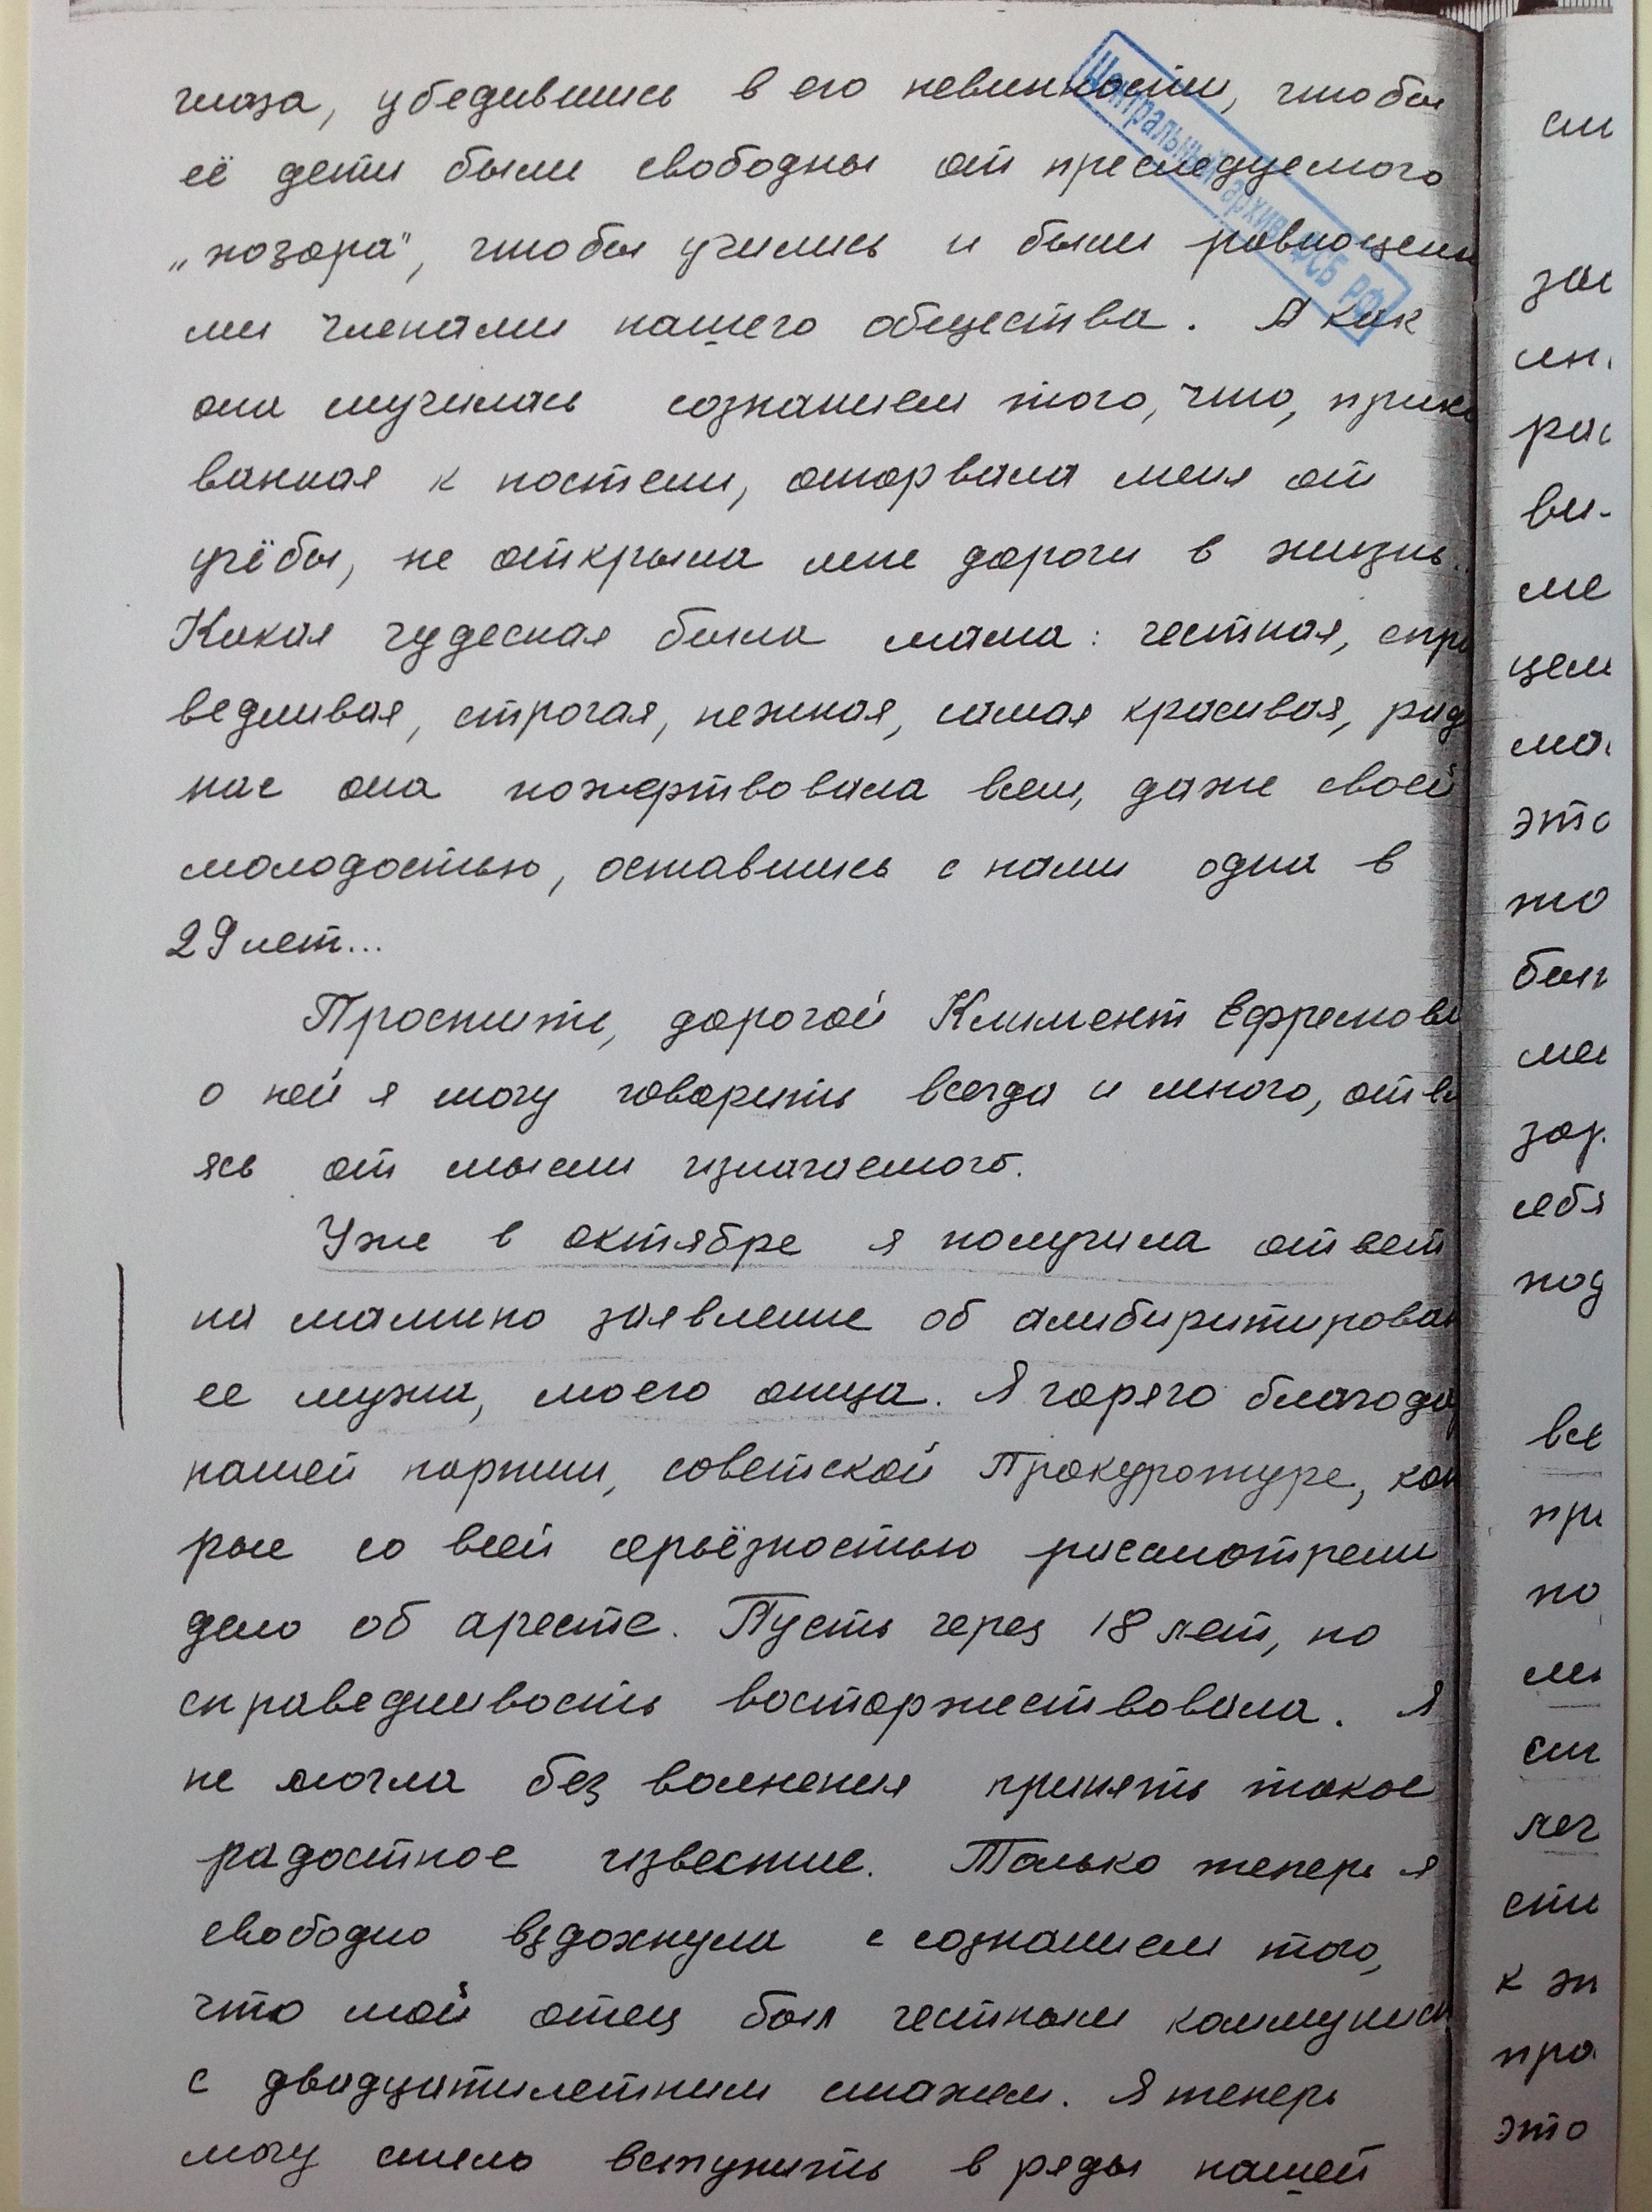 глаза, убедившись в его невинности, чтобы
её дети были свободны от преследуемого
„позора", чтобы учились и были равноценны
ми членами нашего общества. А как
она мучилась сознанием того, что, прико
ванная к постели, оторвала меня от
учёбы, не открыла мне дороги в жизнь..
Какая чудесная была мама: честная, спра
ведливая, строгая, нежная, самая красивая, рад
нас она пожертвовала всем, даже своей
молодостью, оставшись с нами одна в
29 лет...
Простите, дорогой Климент Ефремови
о ней я могу говорить всегда и много, отвл
ясь от мысли излагаемого.
Уже в октябре я получила ответ
на мамино заявление об алибиритирован
ее мужа, моего отца. Я горячо благодар
нашей партии, советской Прокуротуре, кот
рые со всей серьёзностью рассмотрели
дело об аресте. Пусть через 18 лет, но
справедливость восторжествовала. Я
не могла без волнения принять такое
радостное известие. Только теперь я
свободно вздохнула с сознанием того,
что мой отец был честным коммунист
с двадцатилетним стажем. Я теперь
могу смело вступить в ряды нашей
Центральный архив ФСБ РФ
за
ви-
ме
цем
это
то
зар.
себя
под
все
при
по
к эт
про
это